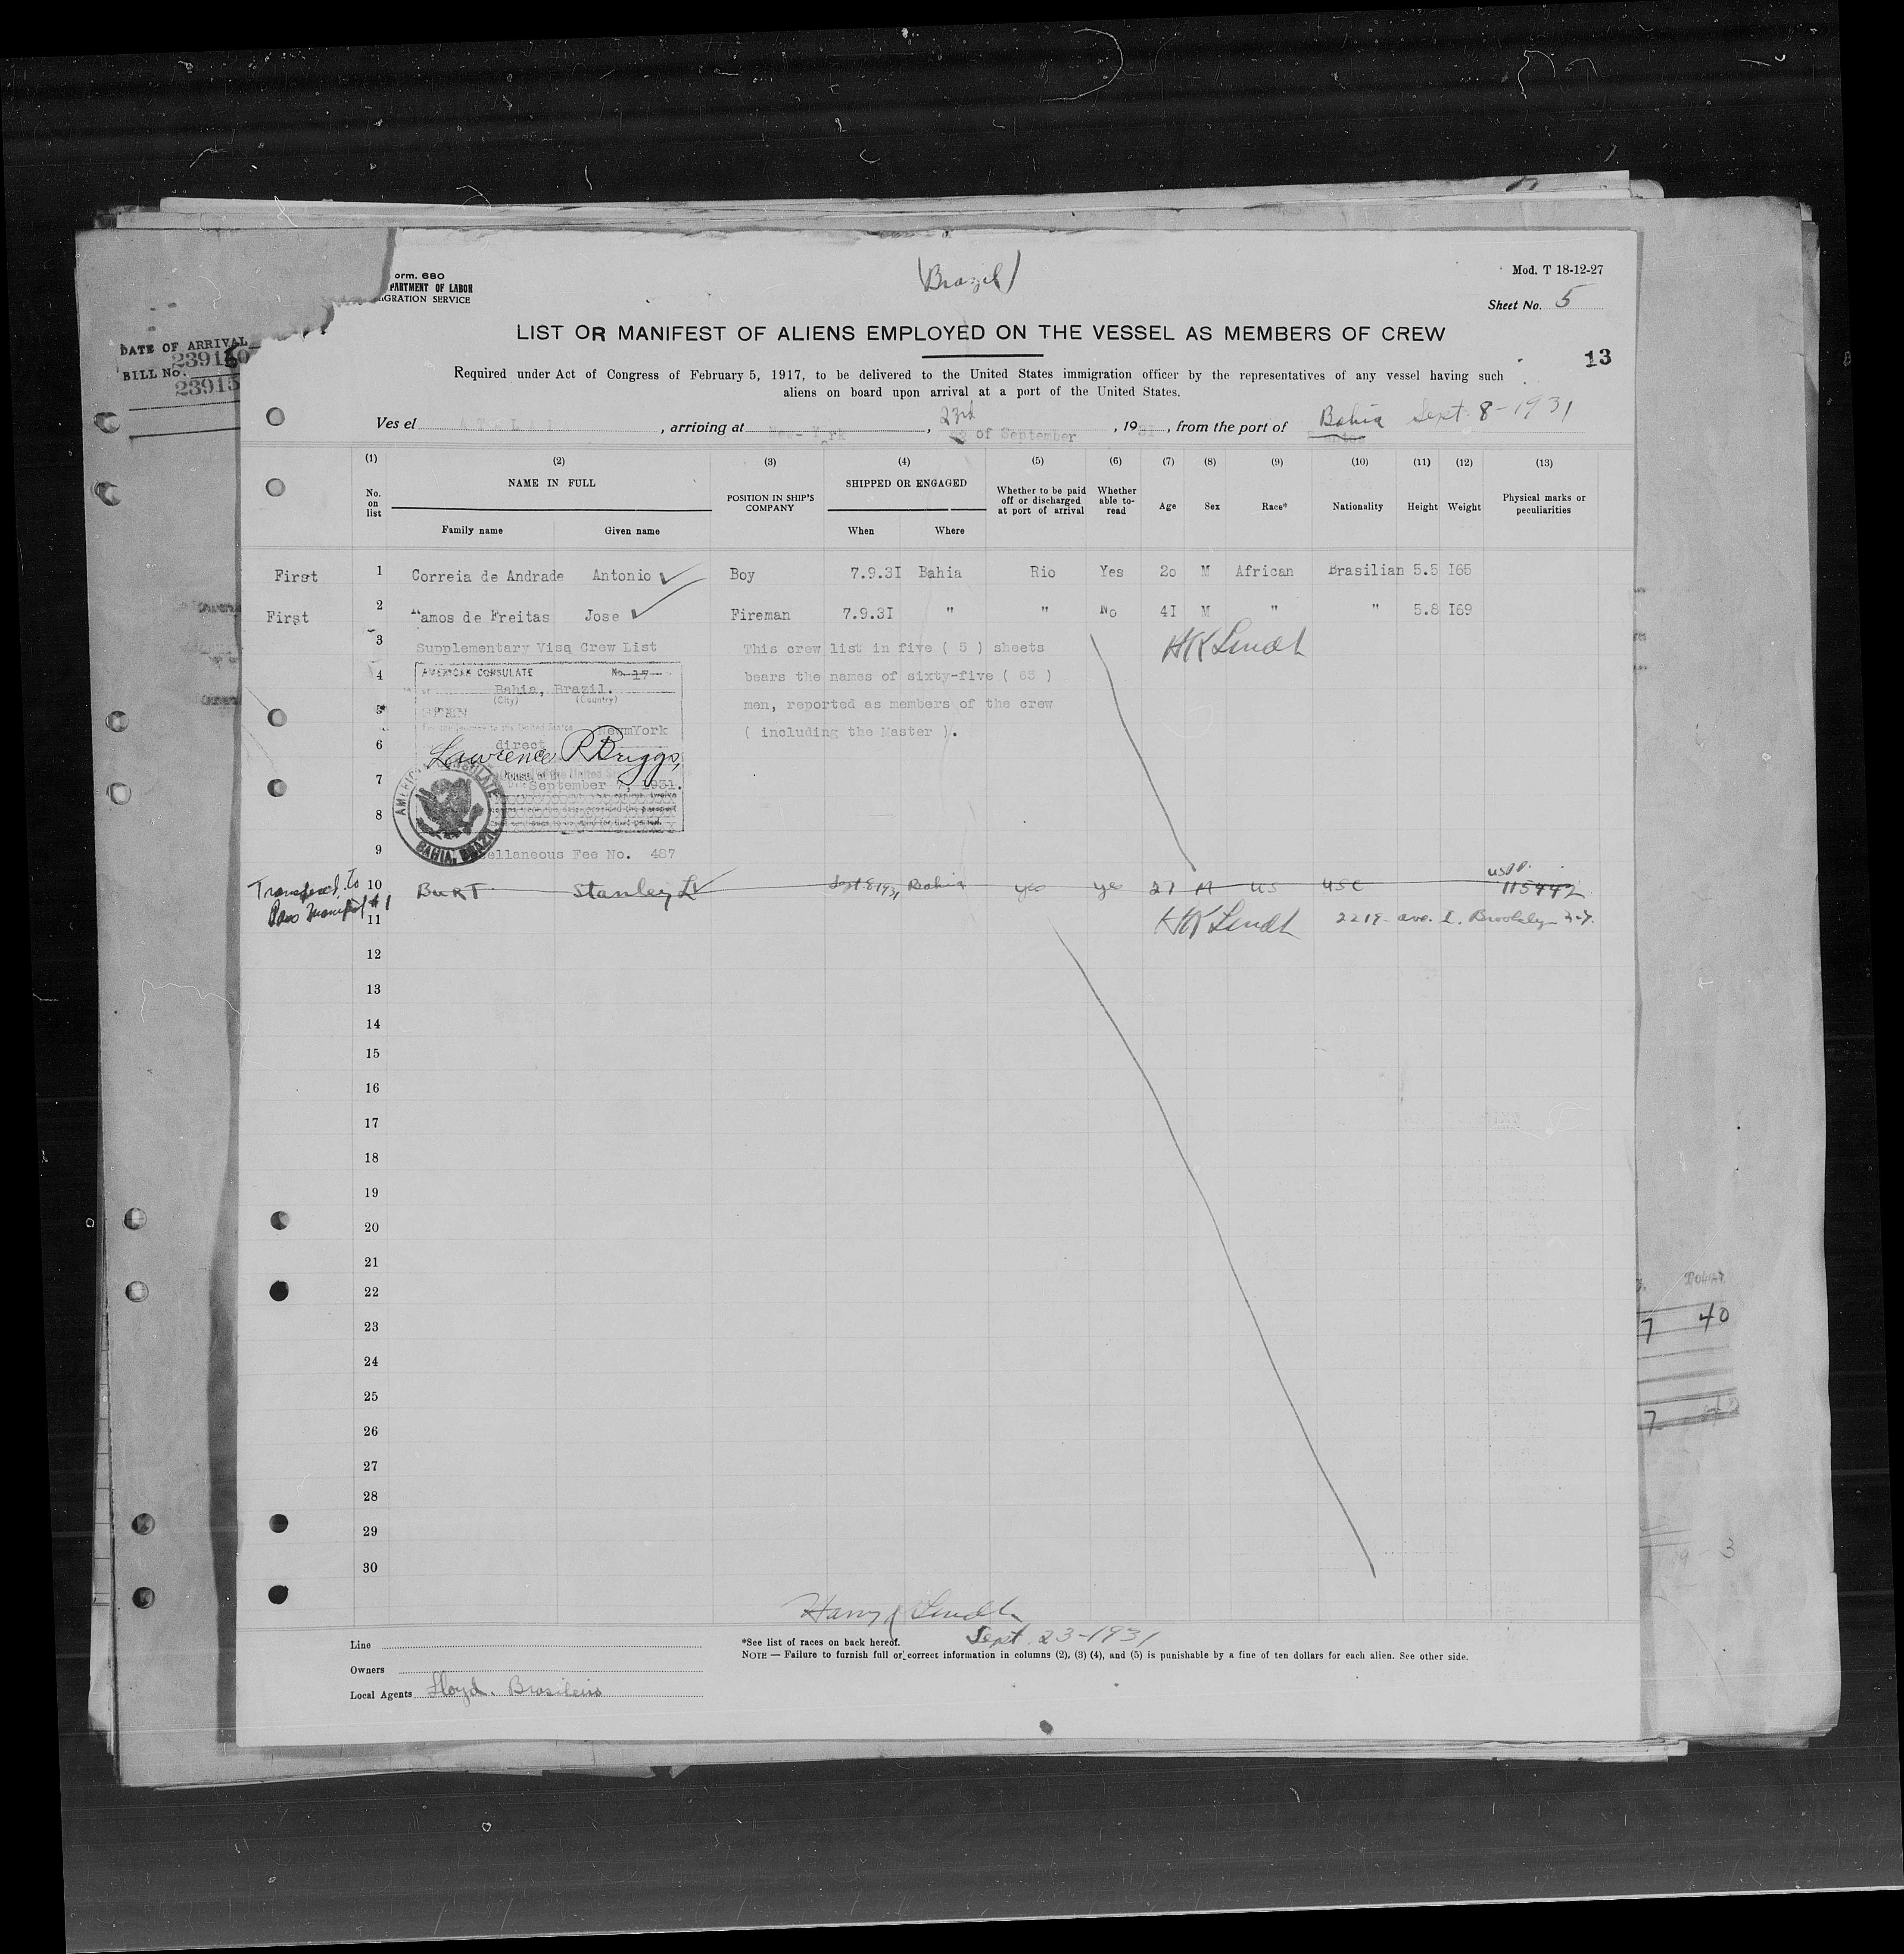 (Brazil)
orm. 680
PARTMENT OF LABOR
IGRATION SERVICE
Mod. T 18-12-27
Sheet No. 5
DATE OF ARRIVAL
BILL No.
23915
LIST OR MANIFEST OF ALIENS EMPLOYED ON THE VESSEL AS MEMBERS OF CREW
13
Required under Act of Congress of February 5, 1917, to be delivered to the United States immigration officer by the representatives of any vessel having such
aliens on board upon arrival at a port of the United States.
Ves el , arriving at New-York , 23rd of September , 1931 , from the port of Bahia Sept. 8-1931
(1) (2) (3) (4) (5) (6) (7) (8) (9) (10) (11) (12) (13)
No. on list
NAME IN FULL
Family name Given name
POSITION IN SHIP'S COMPANY
SHIPPED OR ENGAGED
When Where
Whether to be paid off or discharged at port of arrival
Whether able to- read
Age Sex Race* Nationality Height Weight
Physical marks or peculiarities
First 1 Correia de Andrade Antonio Boy 7.9.3I Bahia Rio Yes 2o M African Brasilian 5.5 I65
First 2 amos de Freitas Jose Fireman 7.9.3I " " No 4I M " " 5.8 I69
3 Supplementary Visa Crew List This crew list in five ( 5 ) sheets HK Lindh
4 AMERICAN CONSULATE No. 17 bears the names of sixty-five ( 65 )
Bahia, Brazil.
(City) (Country)
5 men, reported as members of the crew
NewYork
6 direct ( including the Master ).
Lawrence P Briggs,
7 September 7, 1931.
8
AMERICAN CONSULATE
BAHIA, BRAZIL
9 ellaneous Fee No. 487
Transferred to 10 BURT Stanley L Sept 8 1931 Bahia yes yes 27 M US USC USPP. 115442
Pass Manifest #1 11 HK Lindh 2219- ave. I. Brooklyn N.Y.
12
13
14
15
16
17
18
19
20
21
22
23
24
25
26
27
28
29
30
7 40
7
3
Harry K Lindh
Sept 23-1931
Line
Owners
Local Agents Lloyd. Brasileiro
*See list of races on back hereof.
NOTE — Failure to furnish full or correct information in columns (2), (3) (4), and (5) is punishable by a fine of ten dollars for each alien. See other side.